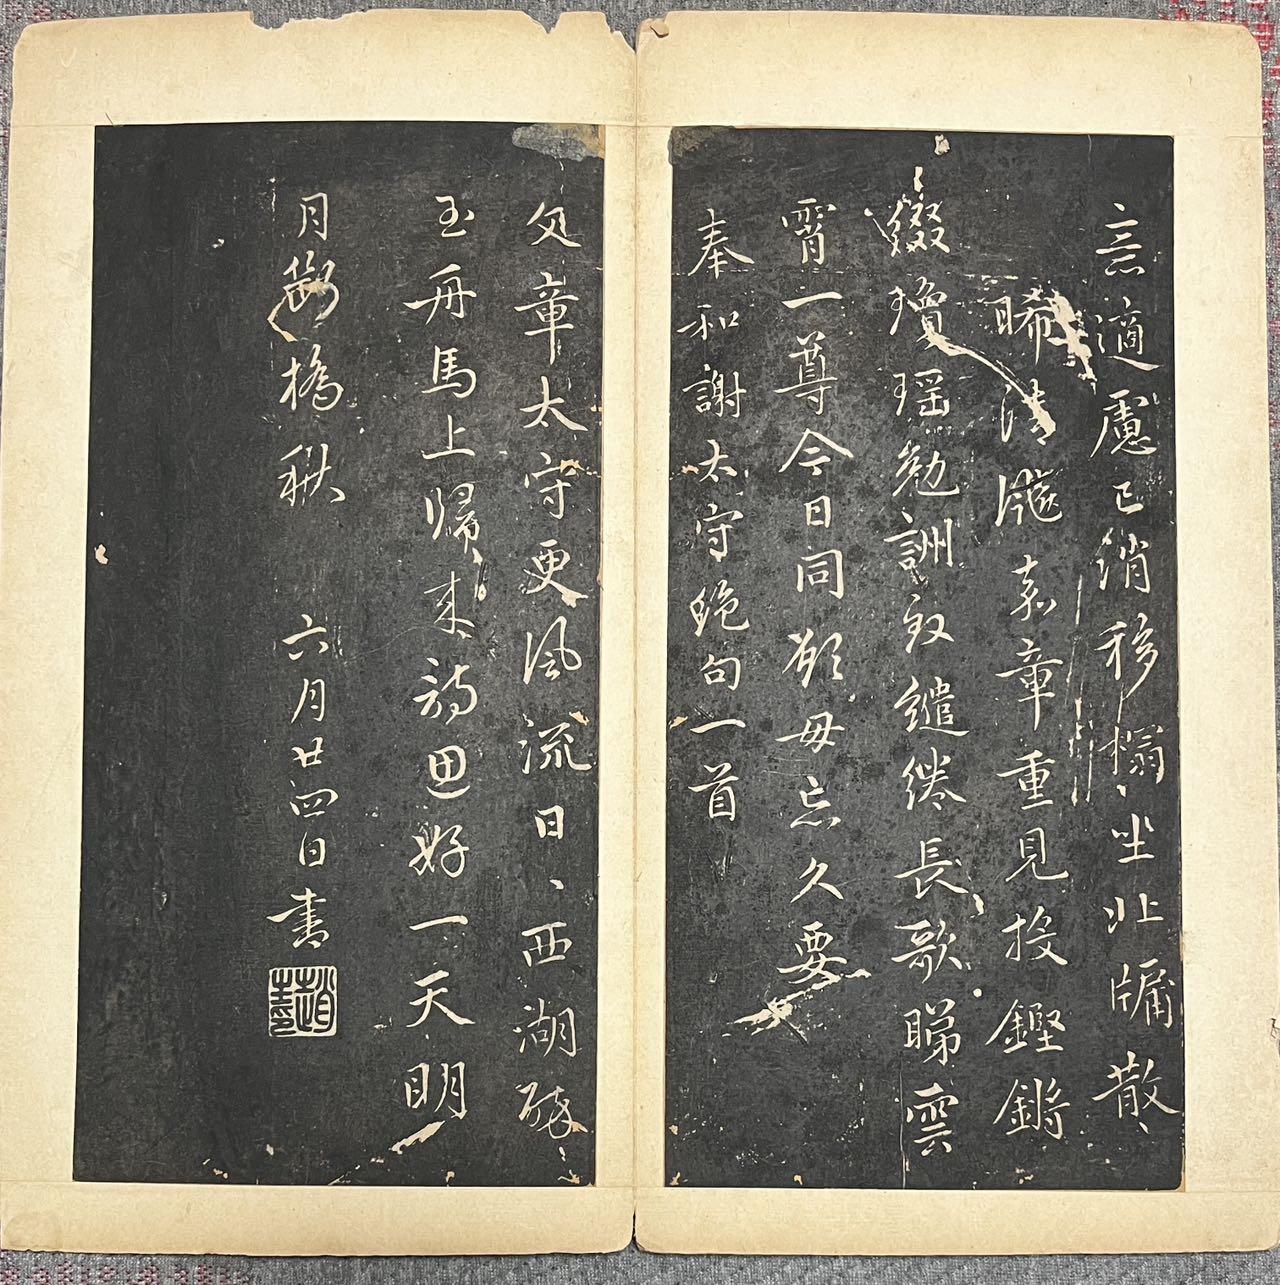 意適慮已銷移榻坐北牖散
晞清颸嘉章重見投鏗鏘
綴瓊瑤勉詶敘繾綣長歌睇雲
霄一尊今日同願毋忘久要
奉和謝太守絕句一首
文章太守更風流日〻西湖醉
玉舟馬上歸來詩思好一天明
月斷橋秋 六月廿四日書